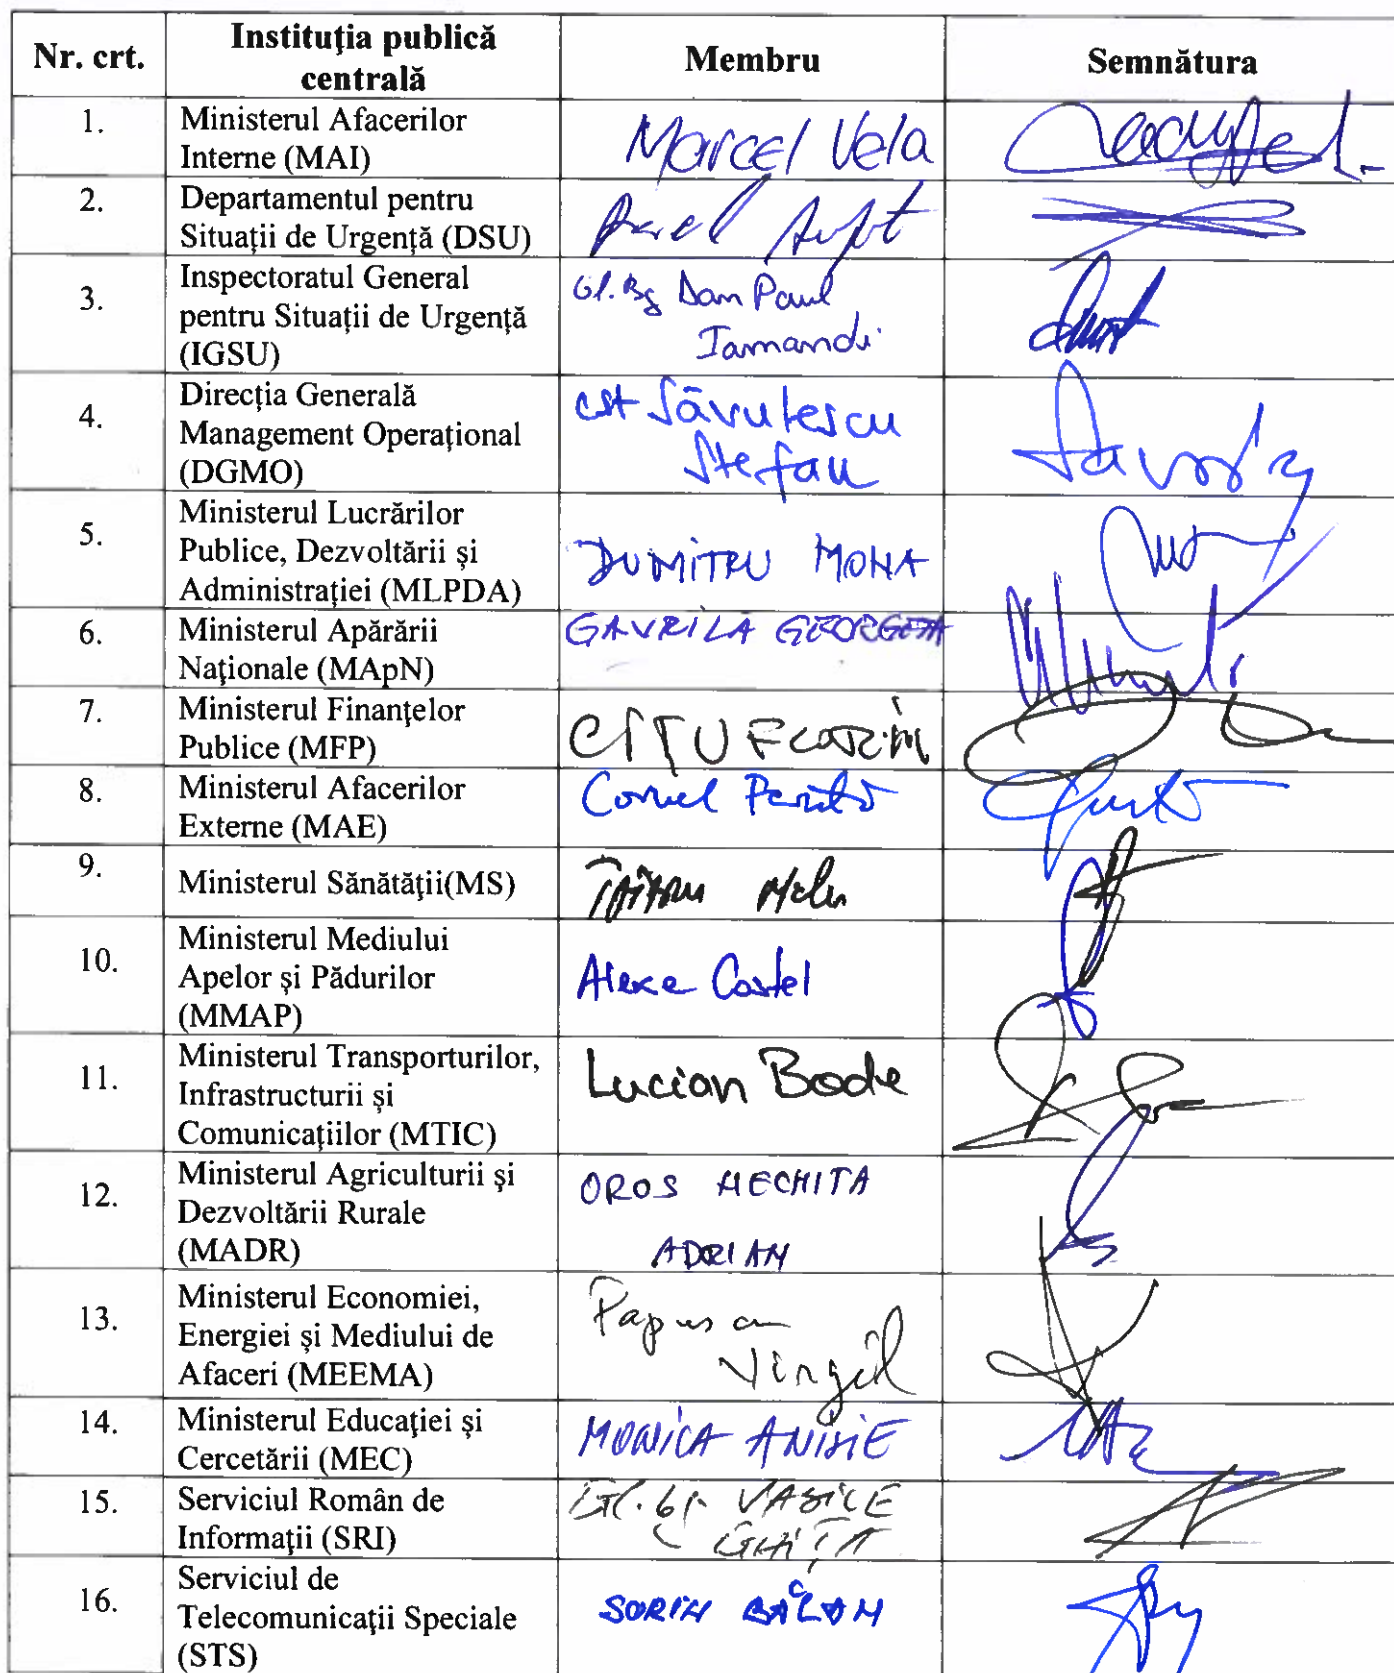 Nr. crt.
Instituţia publică
centrală
Membru
Semnătura
1.
Ministerul Afacerilor
Interne (MAI)
Marcel Vela
2.
Departamentul pentru
Situaţii de Urgenţă (DSU)
3.
Inspectoratul General
pentru Situaţii de Urgenţă
(IGSU)
Gl. Bg Dan Paul
Iamandi
4.
Direcţia Generală
Management Operaţional
(DGMO)
Săvulescu
Stefan
5.
Ministerul Lucrărilor
Publice, Dezvoltării şi
Administraţiei (MLPDA)
DUMITRU MOHA
6.
Ministerul Apărării
Naţionale (MApN)
GAVRILA GEORGETA
7.
Ministerul Finanţelor
Publice (MFP)
CÎŢU FLORIN
8.
Ministerul Afacerilor
Externe (MAE)
Cornel
9.
Ministerul Sănătăţii(MS)
10.
Ministerul Mediului
Apelor şi Pădurilor
(MMAP)
Alexe Costel
11.
Ministerul Transporturilor,
Infrastructurii şi
Comunicaţiilor (MTIC)
Lucian Bode
12.
Ministerul Agriculturii şi
Dezvoltării Rurale
(MADR)
OROS NECHITA
ADRIAN
13.
Ministerul Economiei,
Energiei şi Mediului de
Afaceri (MEEMA)
Papusan
Virgil
14.
Ministerul Educaţiei şi
Cercetării (MEC)
MONICA ANISIE
15.
Serviciul Român de
Informaţii (SRI)
VASILE
GHIŢĂ
16.
Serviciul de
Telecomunicaţii Speciale
(STS)
SORIN BĂLAN